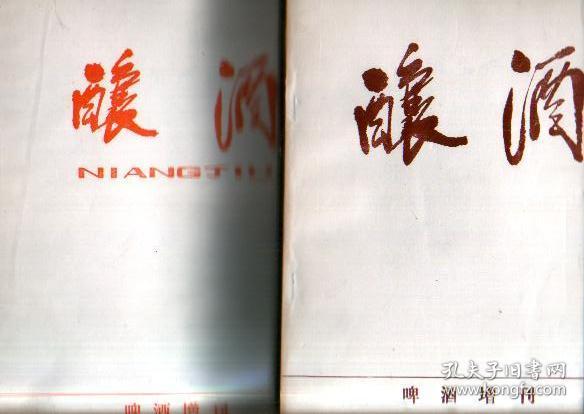 釀酒
NIANGJIU
啤酒增刊
釀酒
啤酒增刊
孔夫子旧书网